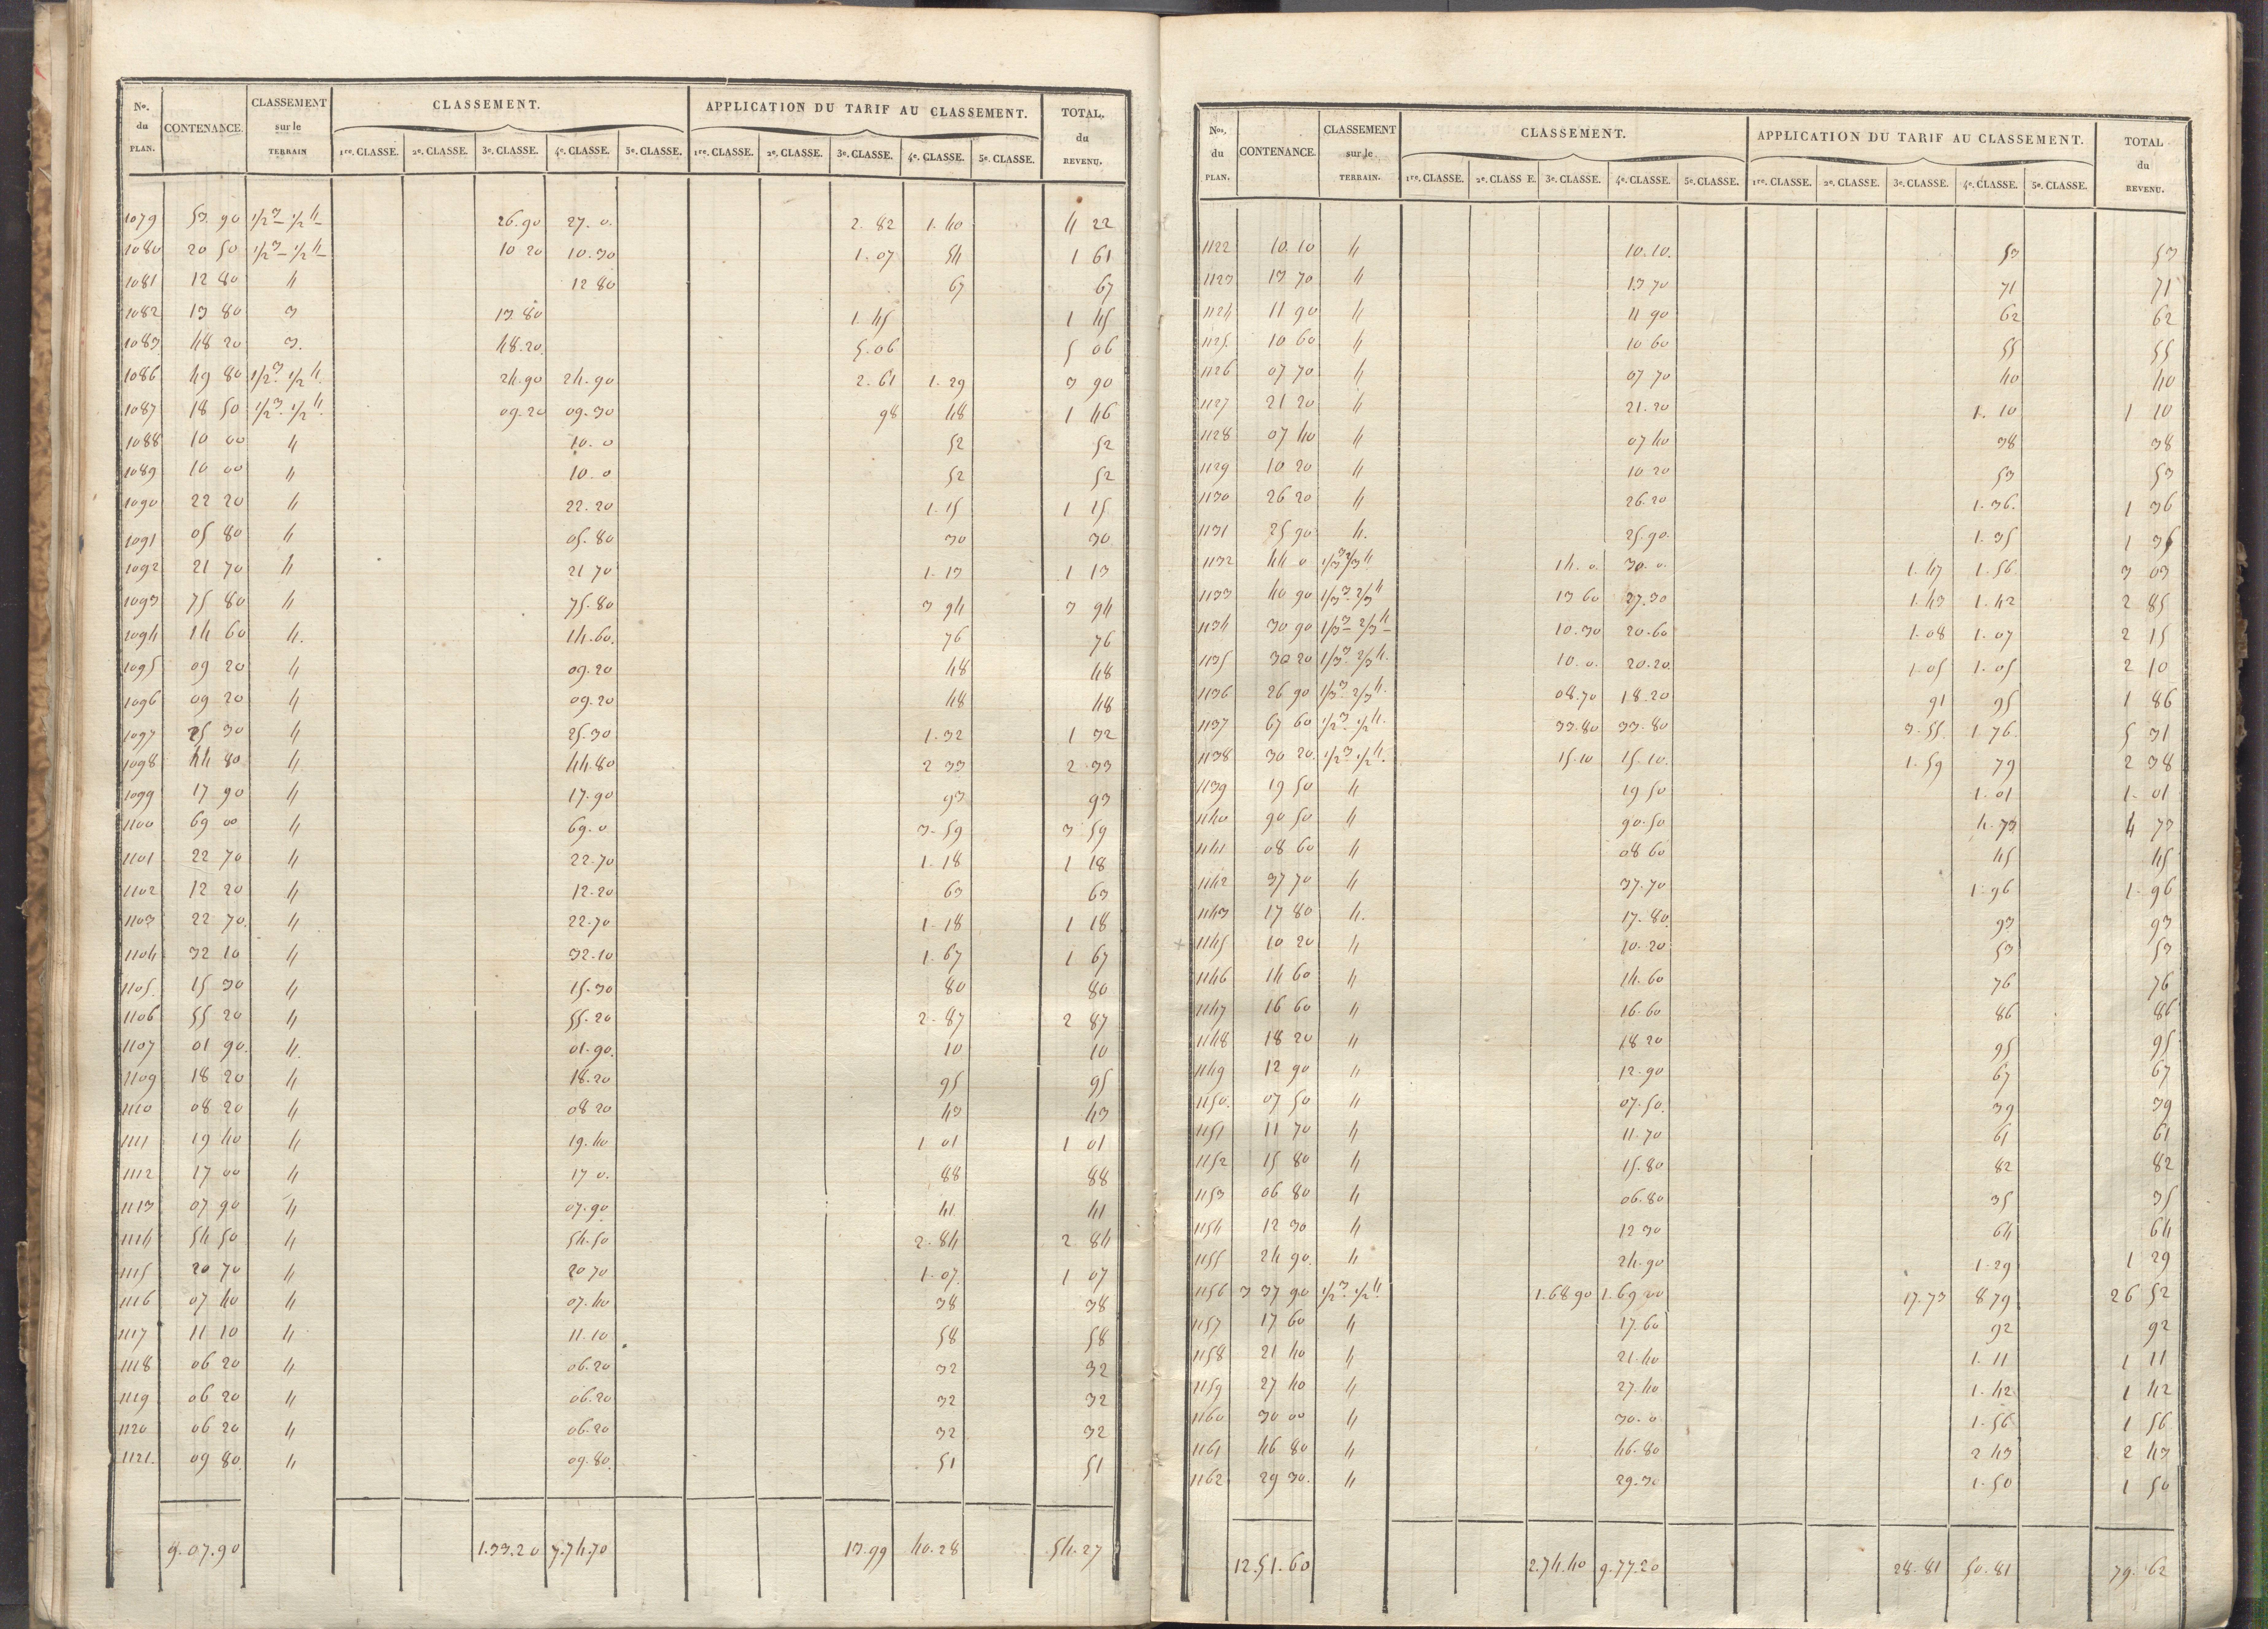 No. du PLAN. CONTENANCE. CLASSEMENT sur le TERRAIN CLASSEMENT. APPLICATION DU TARIF AU CLASSEMENT. TOTAL. du REVENU.
1re. CLASSE. 2e. CLASSE. 3e. CLASSE. 4e. CLASSE. 5e. CLASSE. 1re. CLASSE. 2e. CLASSE. 3e. CLASSE. 4e. CLASSE. 5e. CLASSE.
1079 53.90 1/2 3 1/2 4 26.90 27.0. 2.82 1.40 4 22
1080 20 50 1/2 3 1/2 4 10 20 10.30 1.07 54 1 61
1081 12 80 4 12 80 67 67
1082 13 80 3 13.80 1.45 1 45
1083 48 20 3. 48.20 5.06 5 06
1086 49 80 1/2 3 1/2 4 24.90 24.90 2.61 1.29 3 90
1087 18 50 1/2 3 1/2 4 09.20 09.30 98 48 1 46
1088 10 00 4 10.0 52 52
1089 10 00 4 10.0 52 52
1090 22 20 4 22.20 1.15 1 15
1091 05 80 4 05.80 30 30
1092 21 70 4 21 70 1.13 1 13
1093 75 80 4 75.80 3 94 3 94
1094 14 60 4. 14.60. 76 76
1095 09 20 4 09.20 48 48
1096 09 20 4 09.20 48 48
1097 25 30 4 25.30 1.32 1 32
1098 44 80 4 44.80 2 33 2 33
1099 17 90 4 17.90 93 93
1100 69 00 4 69.0 3.59 3 59
1101 22 70 4 22.70 1.18 1 18
1102 12 20 4 12.20 63 63
1103 22 70 4 22.70 1.18 1 18
1104 32 10 4 32.10 1.67 1 67
1105. 15 30 4 15.30 80 80
1106 55 20 4 55.20 2.87 2 87
1107 01 90. 4. 01.90. 10 10
1109 18 20 4 18.20 95 95
1110 08 20 4 08 20 43 43
1111 19 40 4 19.40 1 01 1 01
1112 17 00 4 17 0. 88 88
1113 07 90 4 07.90 41 41
1114 54 50 4 54.50 2.84 2 84
1115 20 70 4 20 70 1.07. 1 07
1116 07 40 4 07.40 38 38
1117 11 10 4 11.10 58 58
1118 06 20 4 06.20 32 32
1119 06 20 4 06.20 32 32
1120 06 20 4 06.20 32 32
1121. 09 80. 4 09.80. 51 51
9.07.90 1.33.20 7.74.70 13.99 40.28 54.27
Nos. du PLAN. CONTENANCE. CLASSEMENT sur le TERRAIN. CLASSEMENT. APPLICATION DU TARIF AU CLASSEMENT. TOTAL du REVENU.
1re. CLASSE. 2e. CLASS E. 3e. CLASSE. 4e. CLASSE. 5e. CLASSE. 1re. CLASSE. 2e. CLASSE. 3e. CLASSE. 4e. CLASSE. 5e. CLASSE.
1122 10.10 4 10.10. 53 53
1123 13 70 4 13 70 71 71
1124 11 90 4 11 90 62 62
1125 10 60 4 10 60 55 55
1126 07 70 4 07 70 40 40
1127 21 20 4 21.20 1.10 1 10
1128 07 40 4 07 40 38 38
1129 10 20 4 10 20 53 53
1130 26 20 4 26.20 1.36. 1 36
1131 25 90 4. 25.90. 1.35 1 35
1132 44 0 1/3 3 2/3 4 14.0. 30.0. 1.47 1.56 3 03
1133 40 90 1/3 3 2/3 4 13 60 27.30 1.43 1.42 2 85
1134 30 90 1/3 3 2/3 4 10.30 20.60 1.08 1.07 2 15
1135 30 20 1/3 3 2/3 4. 10.0. 20.20. 1.05 1.05 2 10
1136 26 90 1/3 3 2/3 4. 08.70 18.20 91 95 1 86
1137 67 60 1/2 3 1/2 4. 33.80 33.80 3.55. 1 76. 5 31
1138 30 20. 1/2 3 1/2 4. 15.10 15.10. 1.59 79 2 38
1139 19 50 4 19 50 1.01 1.01
1140 90 50 4 90.50 4.73 4 73
1141 08 60 4 08 60 45 45
1142 37 70 4 37.70 1.96 1.96
1143 17 80 4. 17.80. 93 93
+ 1145 10 20 4 10.20 53 53
1146 14 60 4 14.60 76 76
1147 16 60 4 16.60 86 86
1148 18 20 4 18 20 95 95
1149 12 90 4 12.90 67 67
1150. 07 50 4 07.50. 39 39
1151 11 70 4 11.70 61 61
1152 15 80 4 15.80 82 82
1153 06 80 4 06.80 35 35
1154 12 30 4 12 30 64 64
1155 24 90. 4 24.90 1.29 1 29
1156 3 37 90 1/2 3 1/2 4 1.68 90 1.69 00 17.73 8 79 26 52
1157 17 60 4 17.60 92 92
1158 21 40 4 21.40 1.11 1 11
1159 27 40 4 27.40 1.42 1 42
1160 30 00 4 30.0 1.56 1 56
1161 46 80 4 46.80 2 43 2 43
1162 29 30. 4 29.30 1.50 1 50
12.51.60 2.74.40 9.77.20 28.81 50.81 79.62